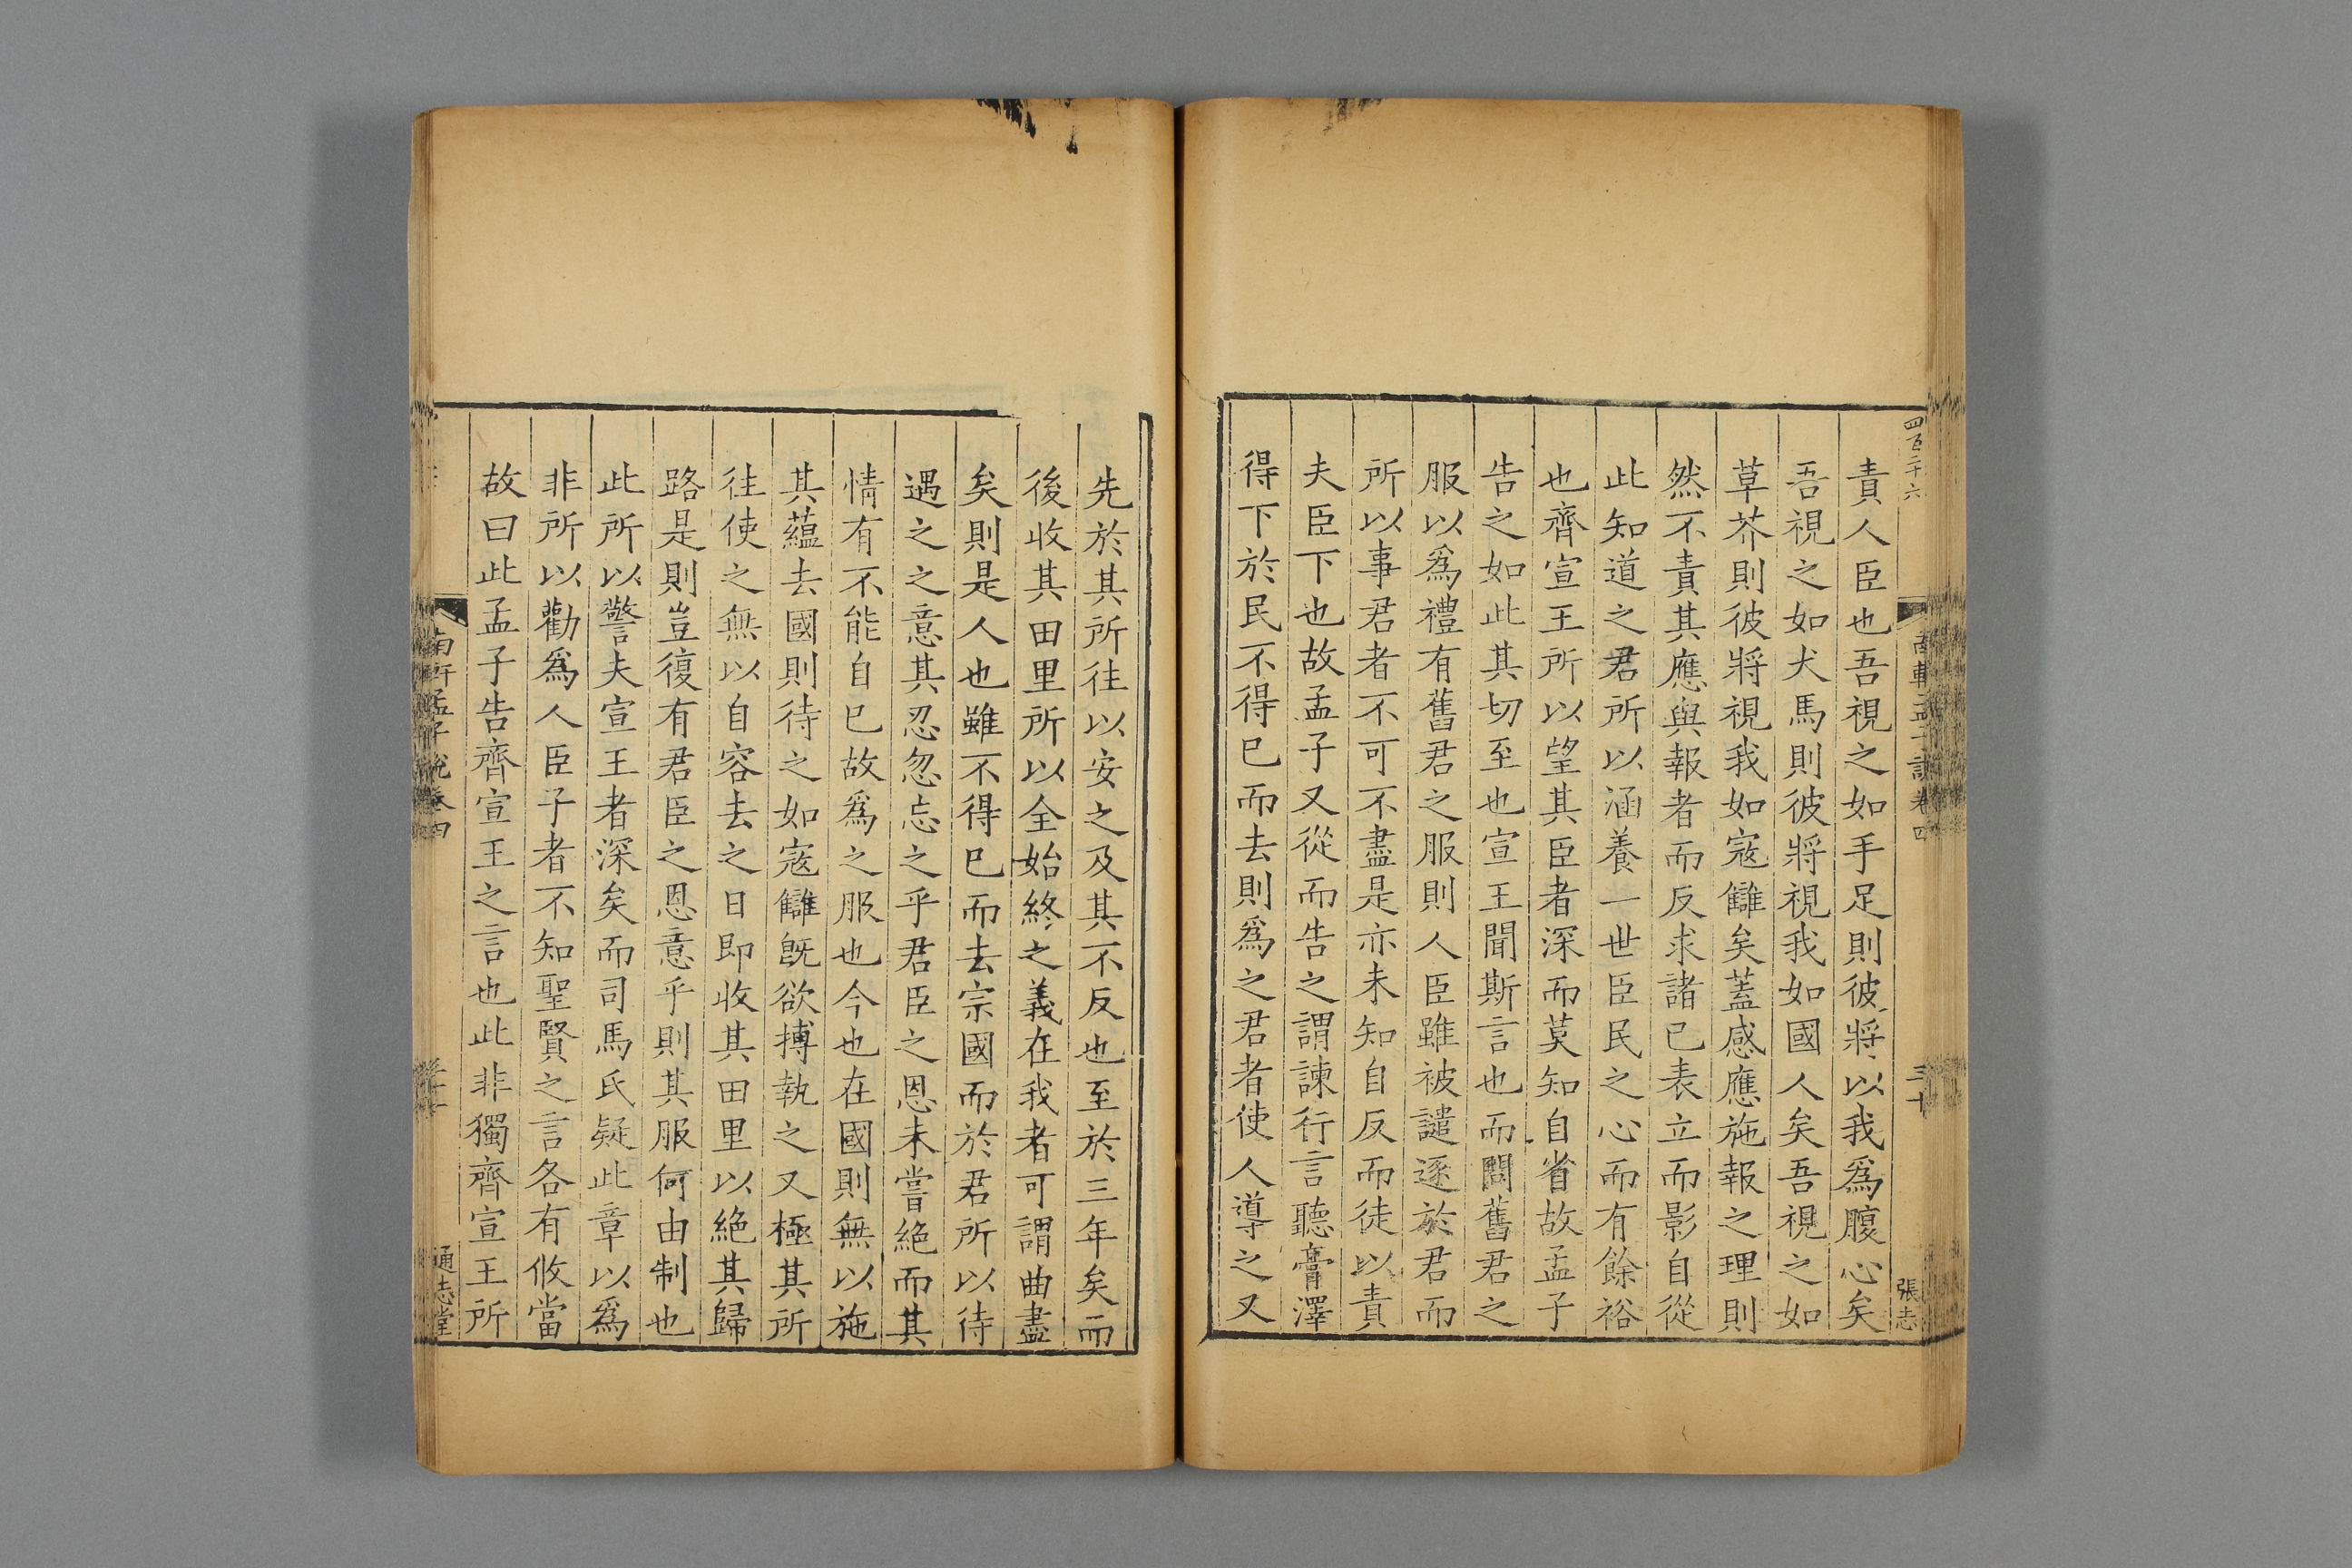 四百二十六
南軒孟子說卷四
三十
張志
責人臣也吾視之如手足則彼將以我爲腹心矣
吾視之如犬馬則彼將視我如國人矣吾視之如
草芥則彼將視我如寇讎矣蓋感應施報之理則
然不責其應與報者而反求諸已表立而影自從
此知道之君所以涵養一世臣民之心而有餘裕
也齊宣王所以望其臣者深而莫知自省故孟子
告之如此其切至也宣王聞斯言也而問舊君之
服以爲禮有舊君之服則人臣雖被譴逐於君而
所以事君者不可不盡是亦未知自反而徒以責
夫臣下也故孟子又從而告之謂諫行言聽膏澤
得下於民不得巳而去則爲之君者使人導之又
先於其所往以安之及其不反也至於三年矣而
後收其田里所以全始終之義在我者可謂曲盡
矣則是人也雖不得巳而去宗國而於君所以待
遇之之意其忍忽忘之乎君臣之恩未嘗絕而其
情有不能自巳故爲之服也今也在國則無以施
其蘊去國則待之如寇讎旣欲搏執之又極其所
往使之無以自容去之日即收其田里以絕其歸
路是則豈復有君臣之恩意乎則其服何由制也
此所以警夫宣王者深矣而司馬氏疑此章以爲
非所以勸爲人臣子者不知聖賢之言各有攸當
故曰此孟子告齊宣王之言也此非獨齊宣王所
南軒孟子說卷四
通志堂